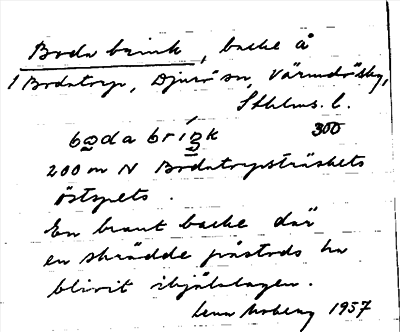 Boda brink, backe å
1 Bodatorp, Djurö sn, Värmdö skg,
Sthlms. l.
boda briŋk 300
200 m N Bodatorpsträskets
östspets.
En brant backe där
en skrädde påstods ha
blivit ihjälslagen.
Lena Moberg 1957